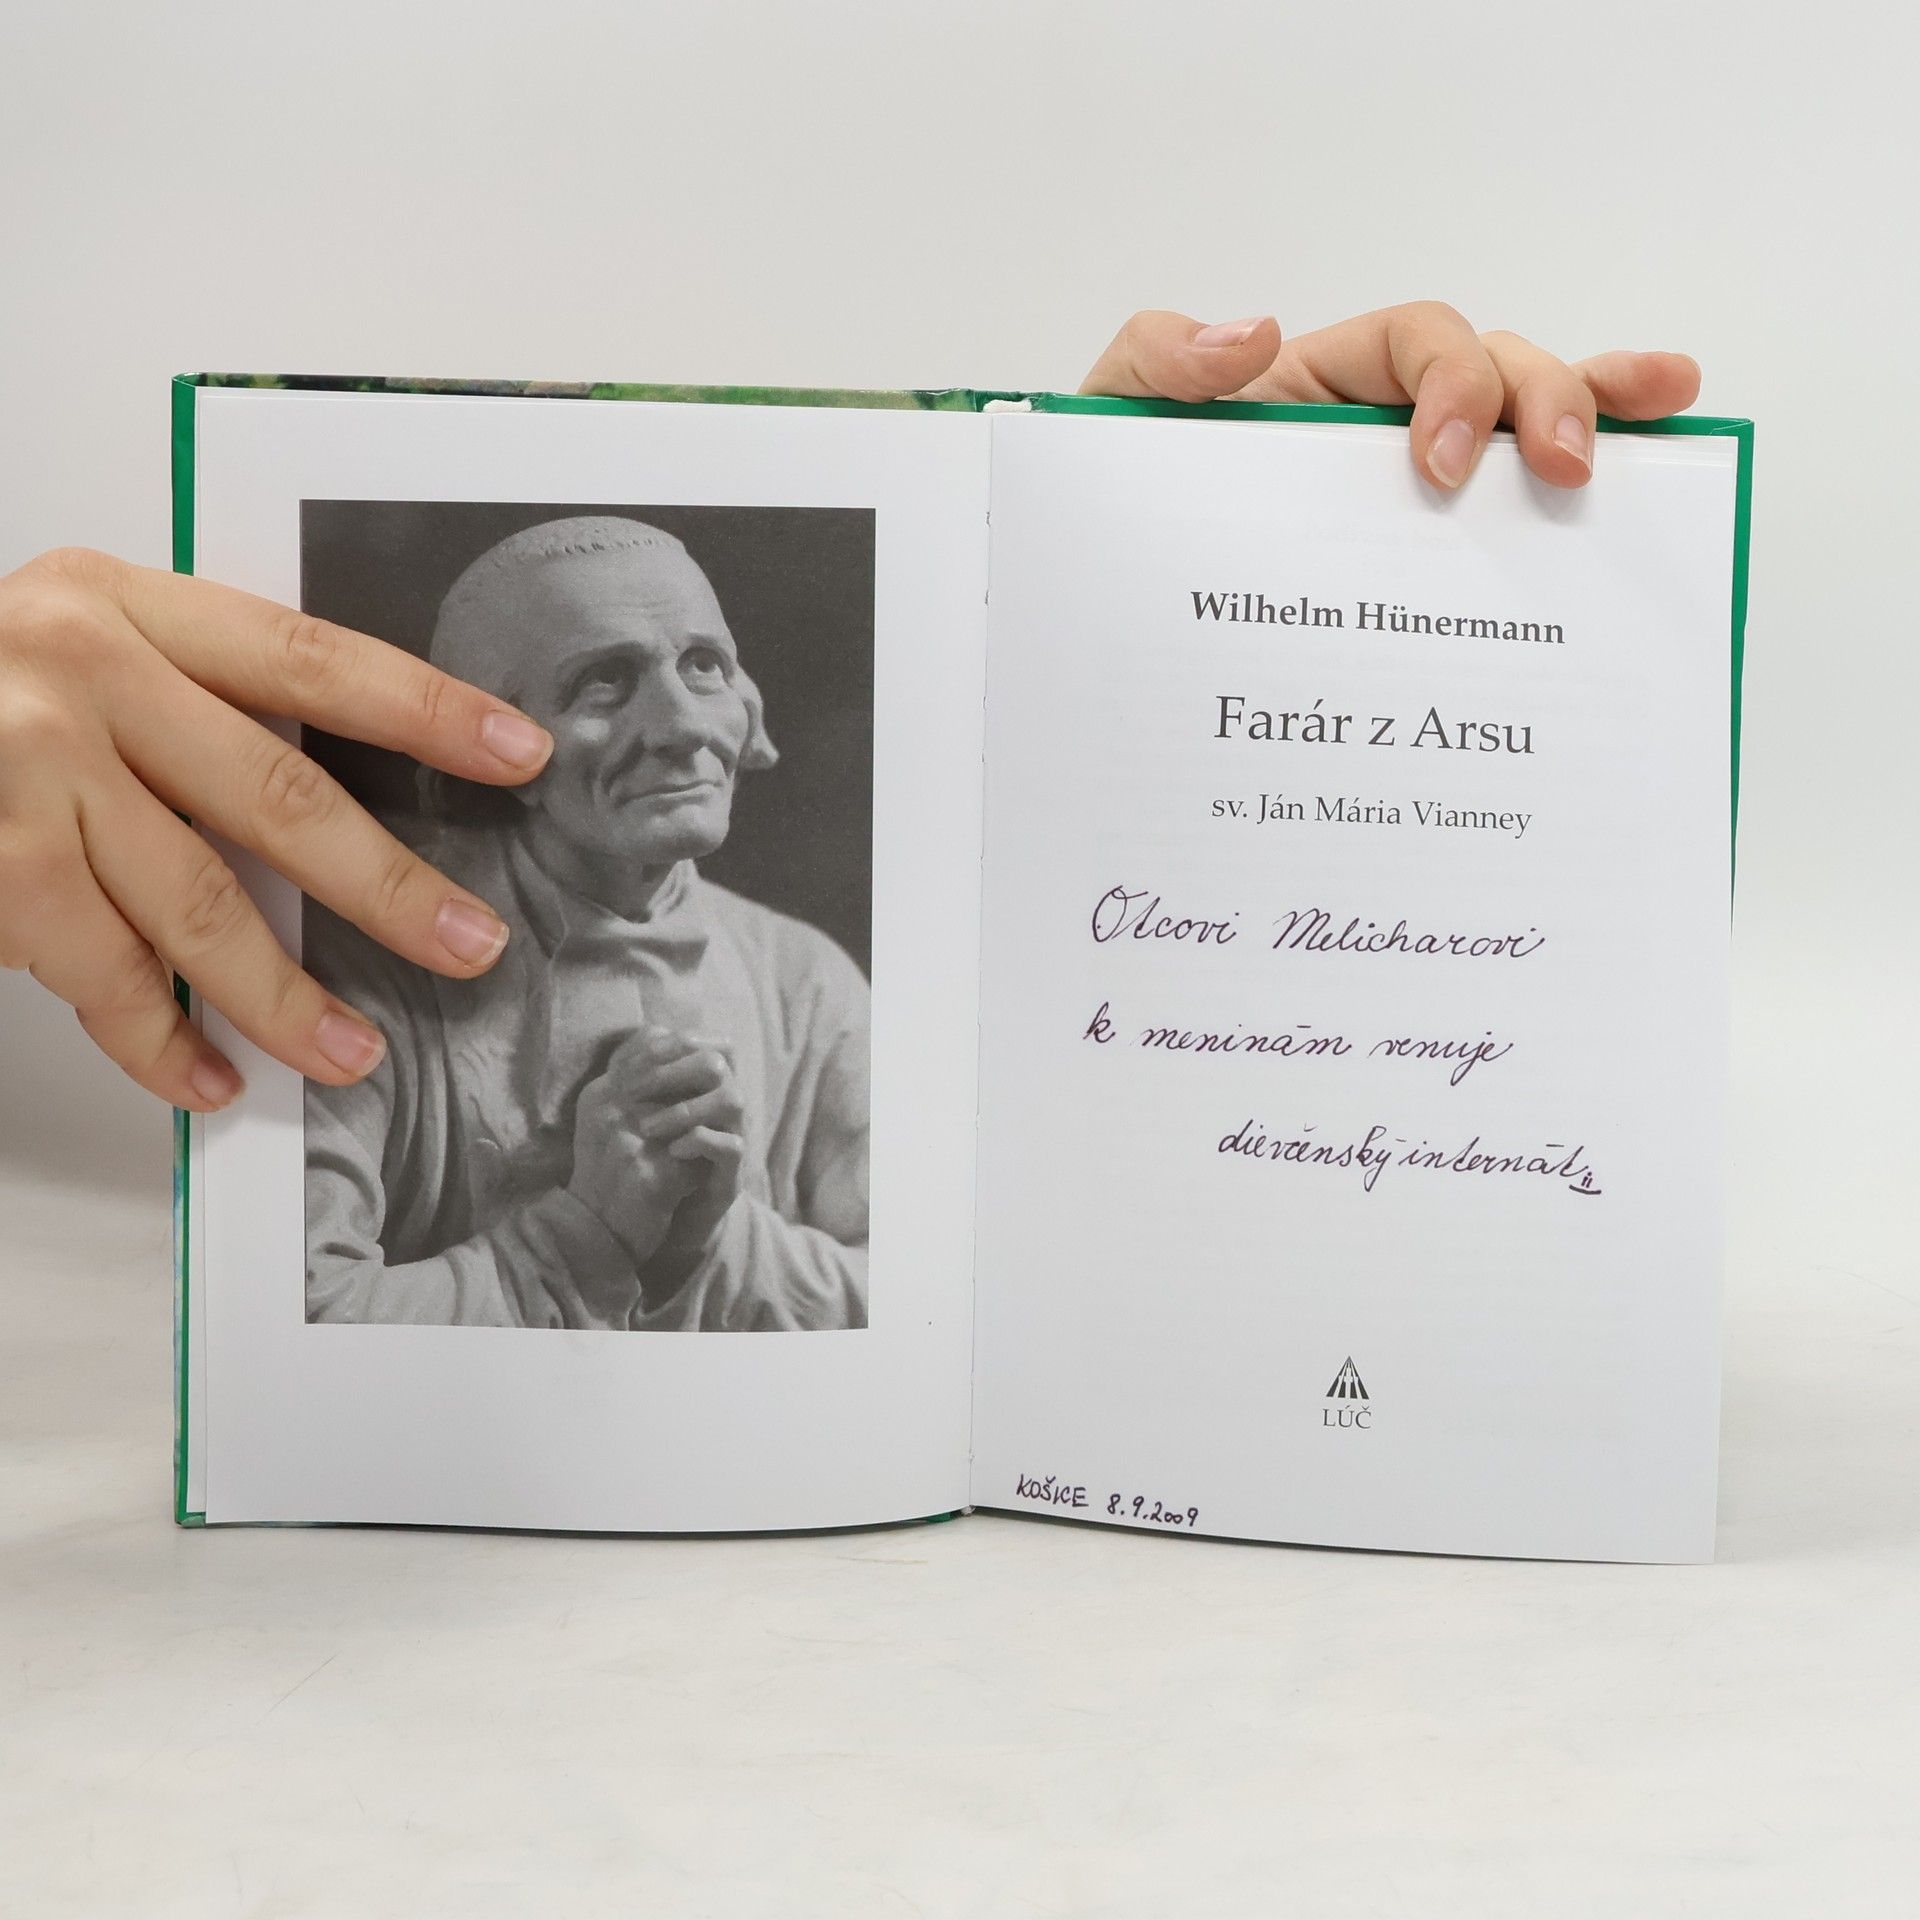 Wilhelm Hünermann
Farár z Arsu
sv. Ján Mária Vianney
Otcovi Melicharovi
k meninám venuje
dievčenský internát
LÚČ
KOŠICE 8.9.2009